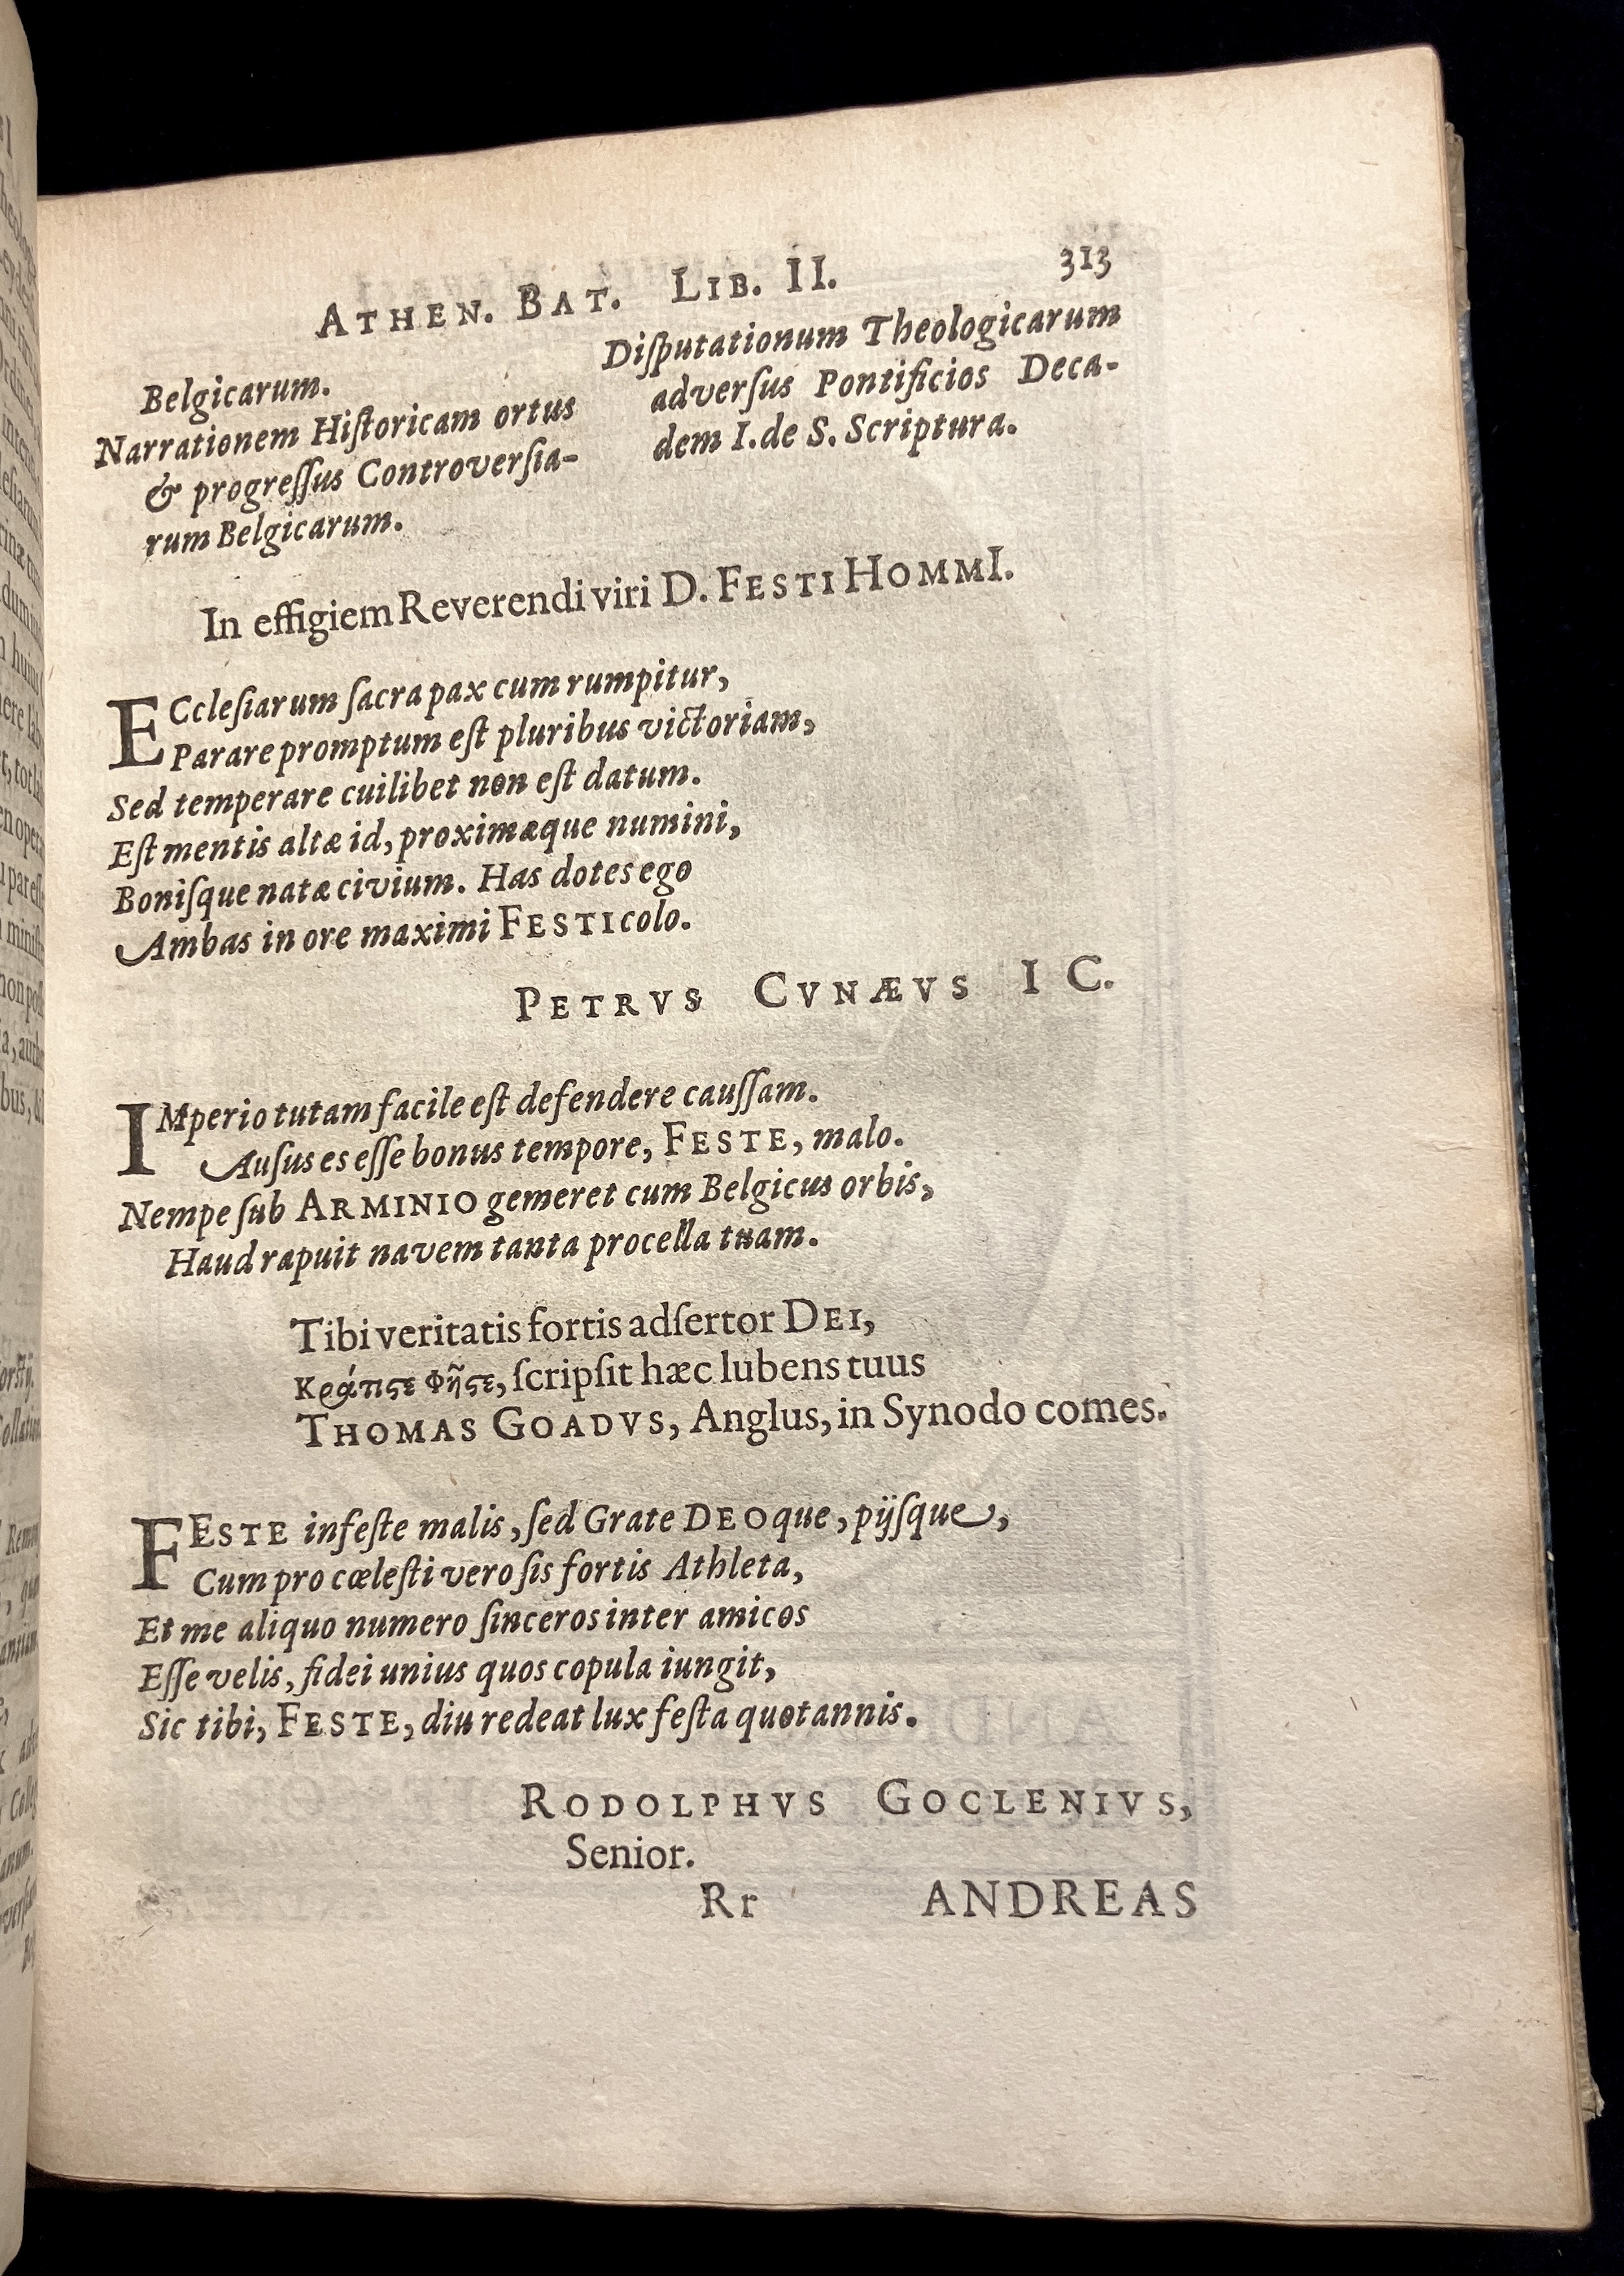 ATHEN. BAT. LIB. II. 313
Belgicarum.
Narrationem Hiſtoricam ortus
& progreſſus Controverſia-
rum Belgicarum.
Diſputationum Theologicarum
adverſus Pontificios Deca-
dem I. de S. Scriptura.
In effigiem Reverendi viri D. FESTI HOMMI.
ECcleſiarum ſacra pax cum rumpitur,
Parare promptum eſt pluribus victoriam,
Sed temperare cuilibet non eſt datum.
Eſt mentis altæ id, proximæque numini,
Boniſque natæ civium. Has dotes ego
Ambas in ore maximi FESTI colo.
PETRVS CVNÆVS I C.
IMperio tutam facile eſt defendere cauſſam.
Auſus es eſſe bonus tempore, FESTE, malo.
Nempe ſub ARMINIO gemeret cum Belgicus orbis,
Haud rapuit navem tanta procella tuam.
Tibi veritatis fortis adſertor DEI,
Κράτιϛε Φῆϛε, ſcripſit hæc lubens tuus
THOMAS GOADVS, Anglus, in Synodo comes.
FESTE infeſte malis, ſed Grate DEOque, pijſque,
Cum pro cœleſti vero ſis fortis Athleta,
Et me aliquo numero ſinceros inter amicos
Eſſe velis, fidei unius quos copula iungit,
Sic tibi, FESTE, diu redeat lux feſta quotannis.
RODOLPHVS GOCLENIVS,
Senior.
Rr ANDREAS